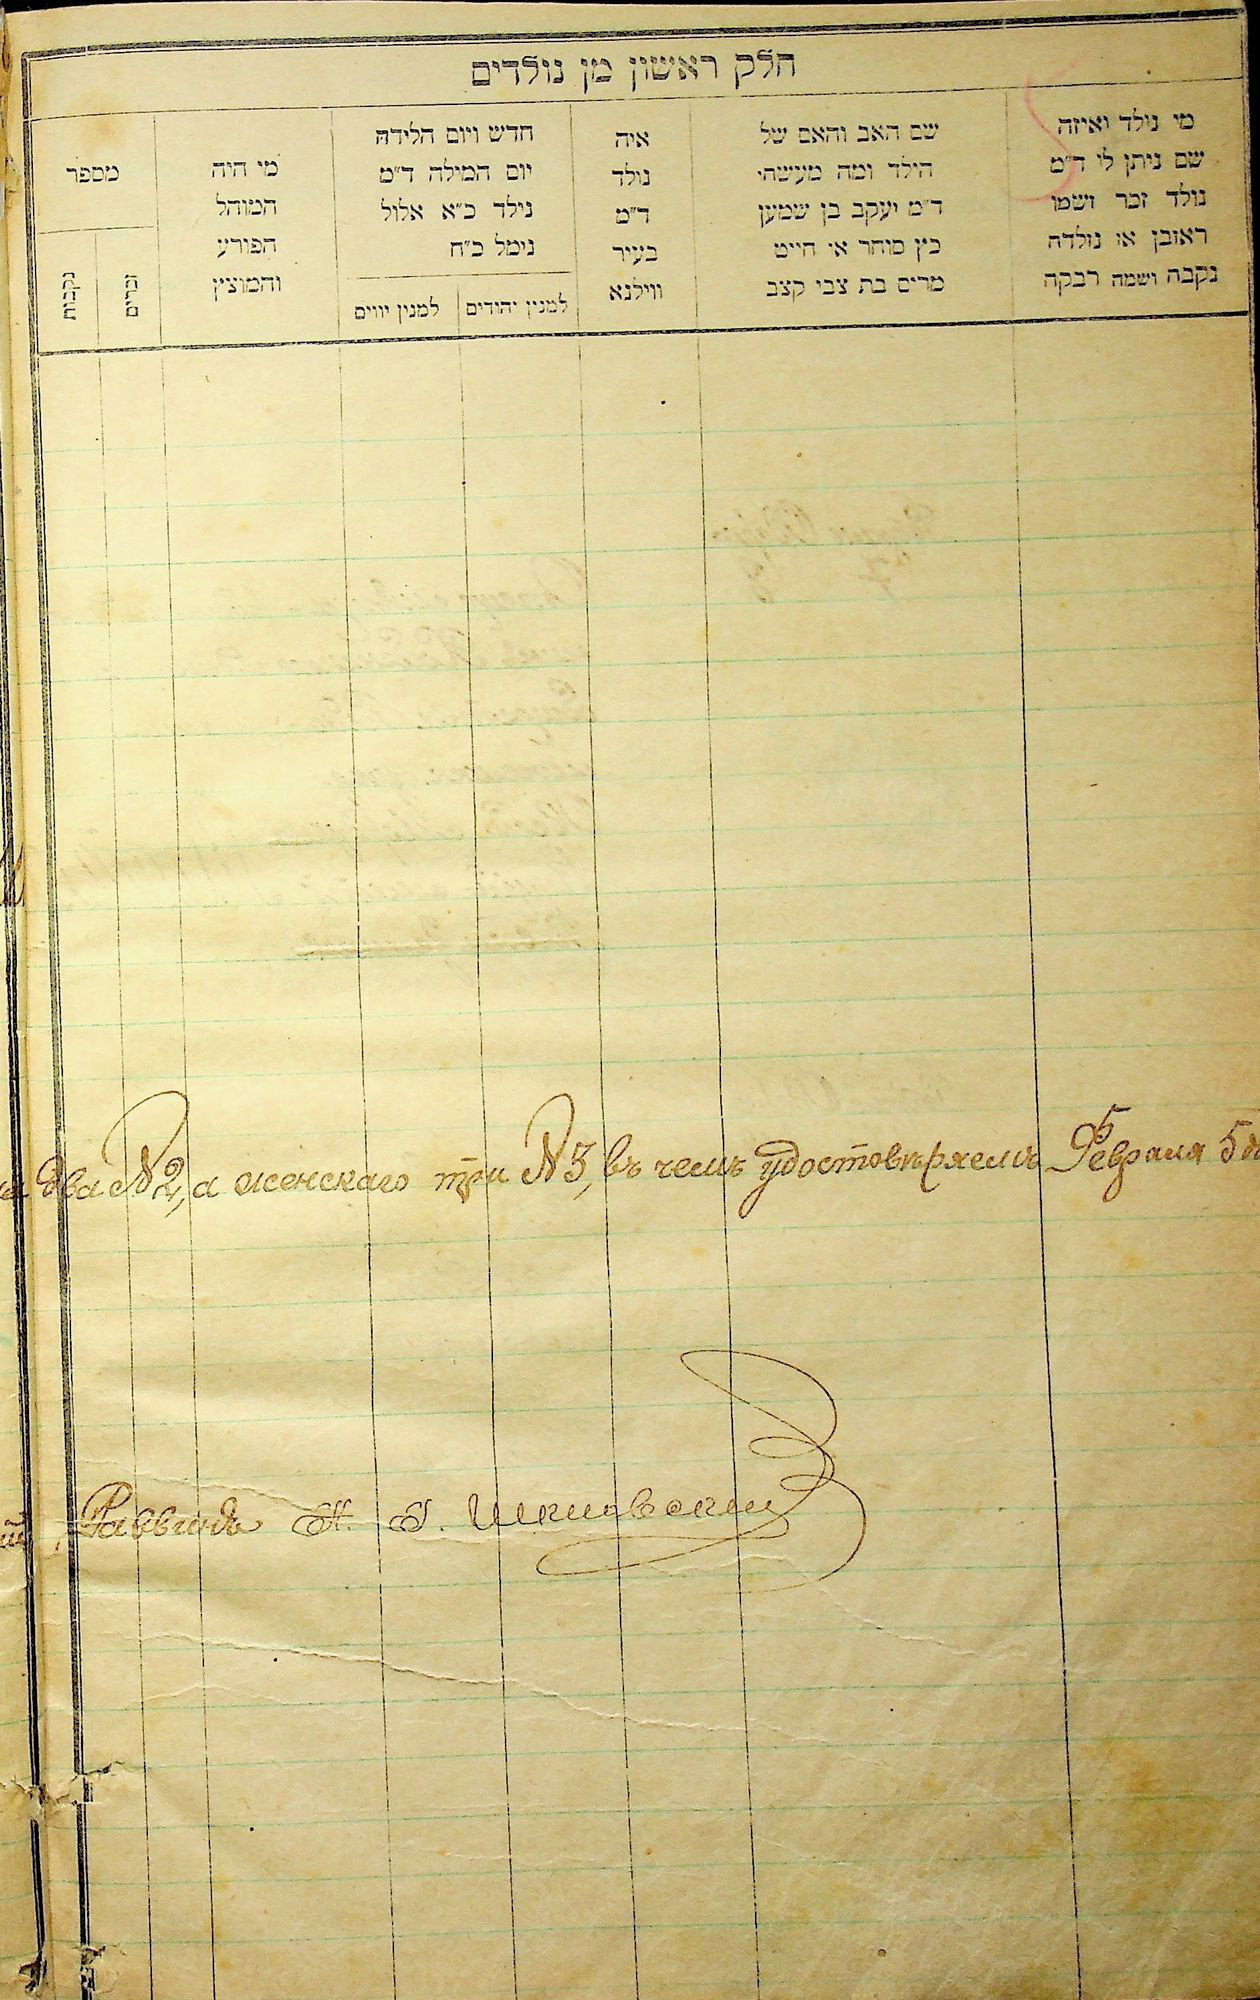 חלק ראשון מן נולדים
מי נולד ואיזה
שם ניתן לו ד״מ
נולד זכר ושמו
ראובן או נולדה
נקבה ושמה רבקה
שם האב והאם של
הילד ומה מעשהי
ד״מ יעקב בן שמען
כץ סוחר או חייט
מרים בת צבי קצב
איה
נולד
ד״מ
בעיר
ווילנא
חדש ויום הלידה
יום המילה ד״מ
נילד כ״א אלול
נימל כ״ח
למנין יהודים
למנין יווים
מי היה
המוהל
הפורע
והמוצץ
מספר
זכרים
נקבות
два №2, а женскаго три №3, въ чемъ удостовѣряемъ Февраля 5
Раввинъ